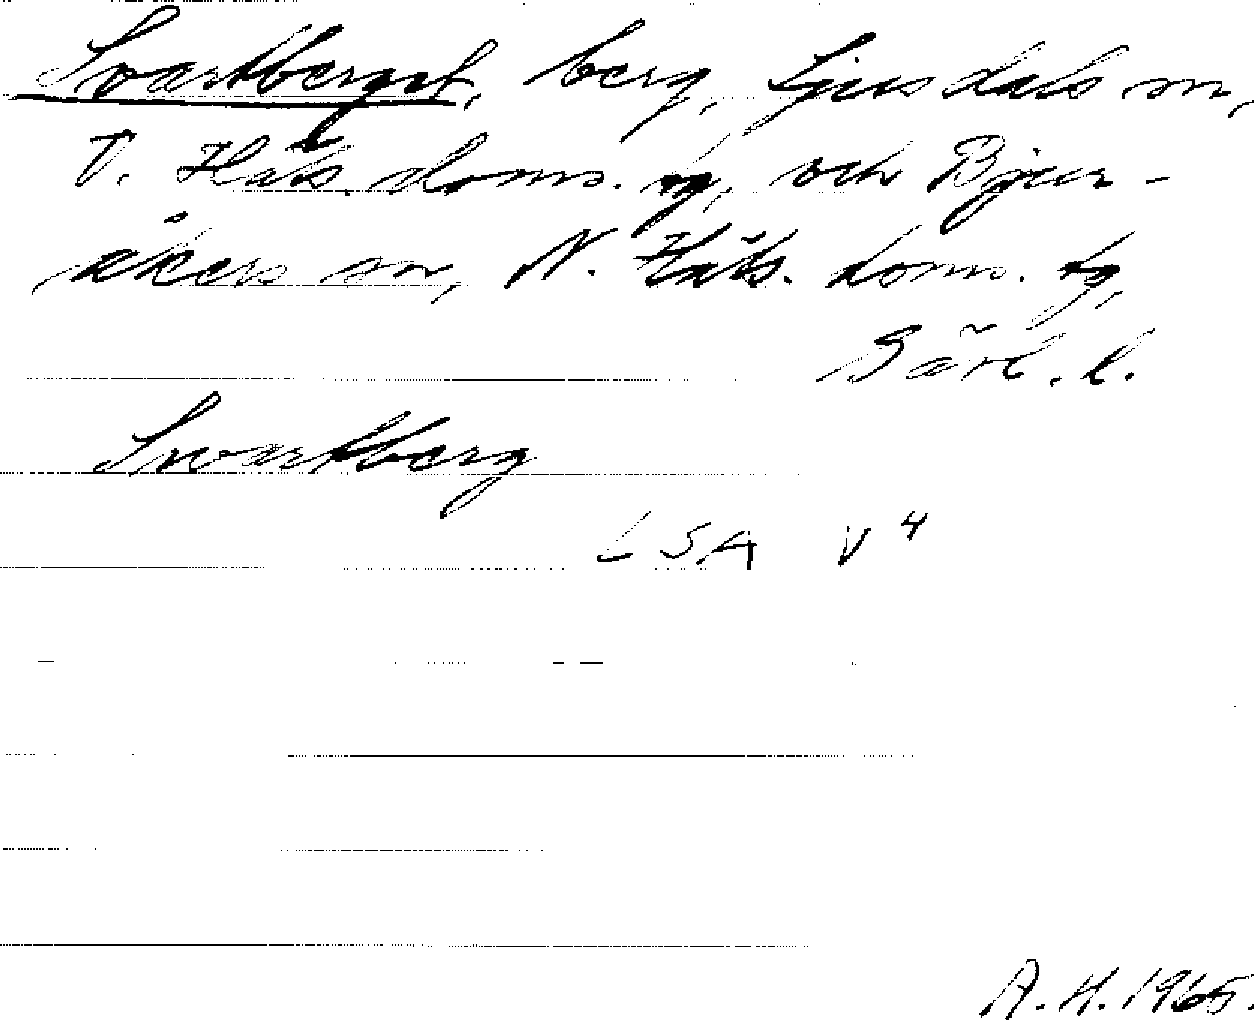 Svartberget, berg, Ljusdals sn,
V. Häls. doms. tg, och Bjur-
åkers sn, N. Häls. doms. tg,
Gävl. l.
Svartberg
LSA V4
A. H. 1965.